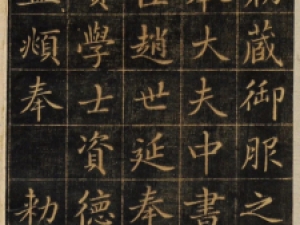 藏御服之
大夫中書
趙世延奉
學士資德
頫奉
勅